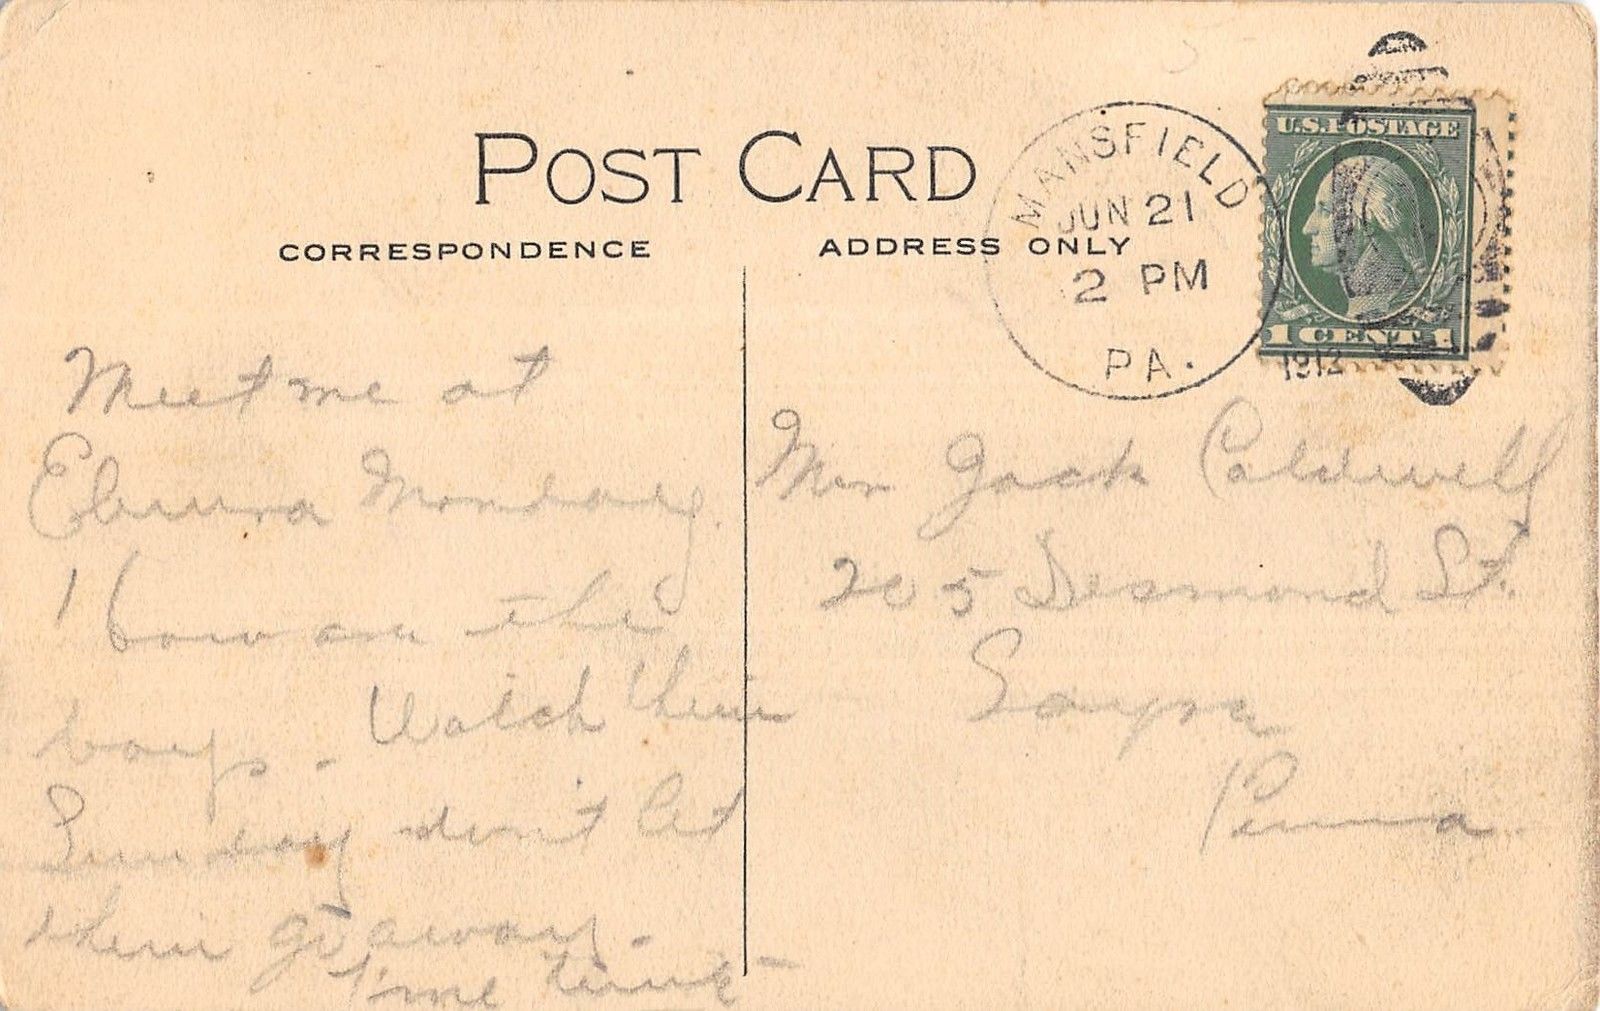 POST CARD
CORRESPONDENCE
ADDRESS ONLY
MANSFIELD
JUN 21
2 PM
PA.
1912
U.S. POSTAGE
1 CENT 1
Meet me at
Elmira Monday.
How are the
boys. Watch them
Sunday don't let
them go away.
Mr Jack Caldwell
205 Desmond St.
Sayre
Penna.